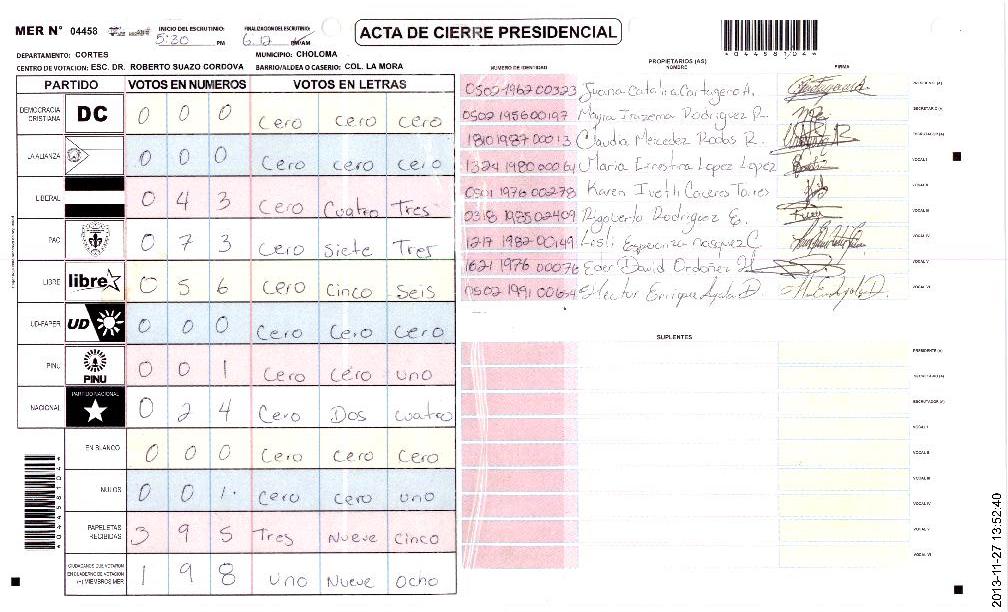 MER N° 04458
INICIO DEL ESCRUTINIO: 5:30 PM
FINALIZACION DEL ESCRUTINIO: 6.12 PM/AM
ACTA DE CIERRE PRESIDENCIAL
*04458104*
DEPARTAMENTO: CORTES
MUNICIPIO: CHOLOMA
CENTRO DE VOTACION: ESC. DR. ROBERTO SUAZO CORDOVA
BARRIO/ALDEA O CASERIO: COL. LA MORA
PARTIDO VOTOS EN NUMEROS VOTOS EN LETRAS
DEMOCRACIA CRISTIANA DC 0 0 0 Cero cero cero
LA ALIANZA 0 0 0 Cero cero cero
LIBERAL 0 4 3 Cero Cuatro Tres
PAC 0 7 3 Cero Siete Tres
LIBRE libre 0 5 6 Cero Cinco Seis
UD-FAPER UD 0 0 0 Cero Cero Cero
PINU PINU 0 0 1 Cero Cero uno
NACIONAL PARTIDO NACIONAL 0 2 4 Cero Dos cuatro
EN BLANCO 0 0 0 Cero Cero Cero
NULOS 0 0 1. Cero cero uno
PAPELETAS RECIBIDAS 3 9 5 Tres Nueve Cinco
CIUDADANOS QUE VOTARON EN CUADERNO DE VOTACION (+) MIEMBROS MER 1 9 8 Uno Nueve Ocho
*04458104*
PROPIETARIOS (AS)
NUMERO DE IDENTIDAD NOMBRE FIRMA
0502 1962 00323 Juana Catalia Cartagena A. PRESIDENTE (A)
0502 1956 00197 Rodriguez R. SECRETARIO (A)
1810 1987 00013 Claudia Mercedez Rodas R. ESCRUTADOR (A)
1324 1980 00061 Maria Ernestina Lopez Lopez VOCAL I
0501 1976 00278 Karen Iveth Caceres VOCAL II
0318 1985 02409 Rigoberto Rodriguez E. VOCAL III
1217 1982 00149 Lesli Esperanza C. VOCAL IV
1621 1976 00076 Eder David Ordoñez VOCAL V
0502 1991 00654 Hector Enrique Ayala D. VOCAL VI
SUPLENTES
PRESIDENTE (A)
SECRETARIO (A)
ESCRUTADOR (A)
VOCAL I
VOCAL II
VOCAL III
VOCAL IV
VOCAL V
VOCAL VI
2013-11-27 13:52:40